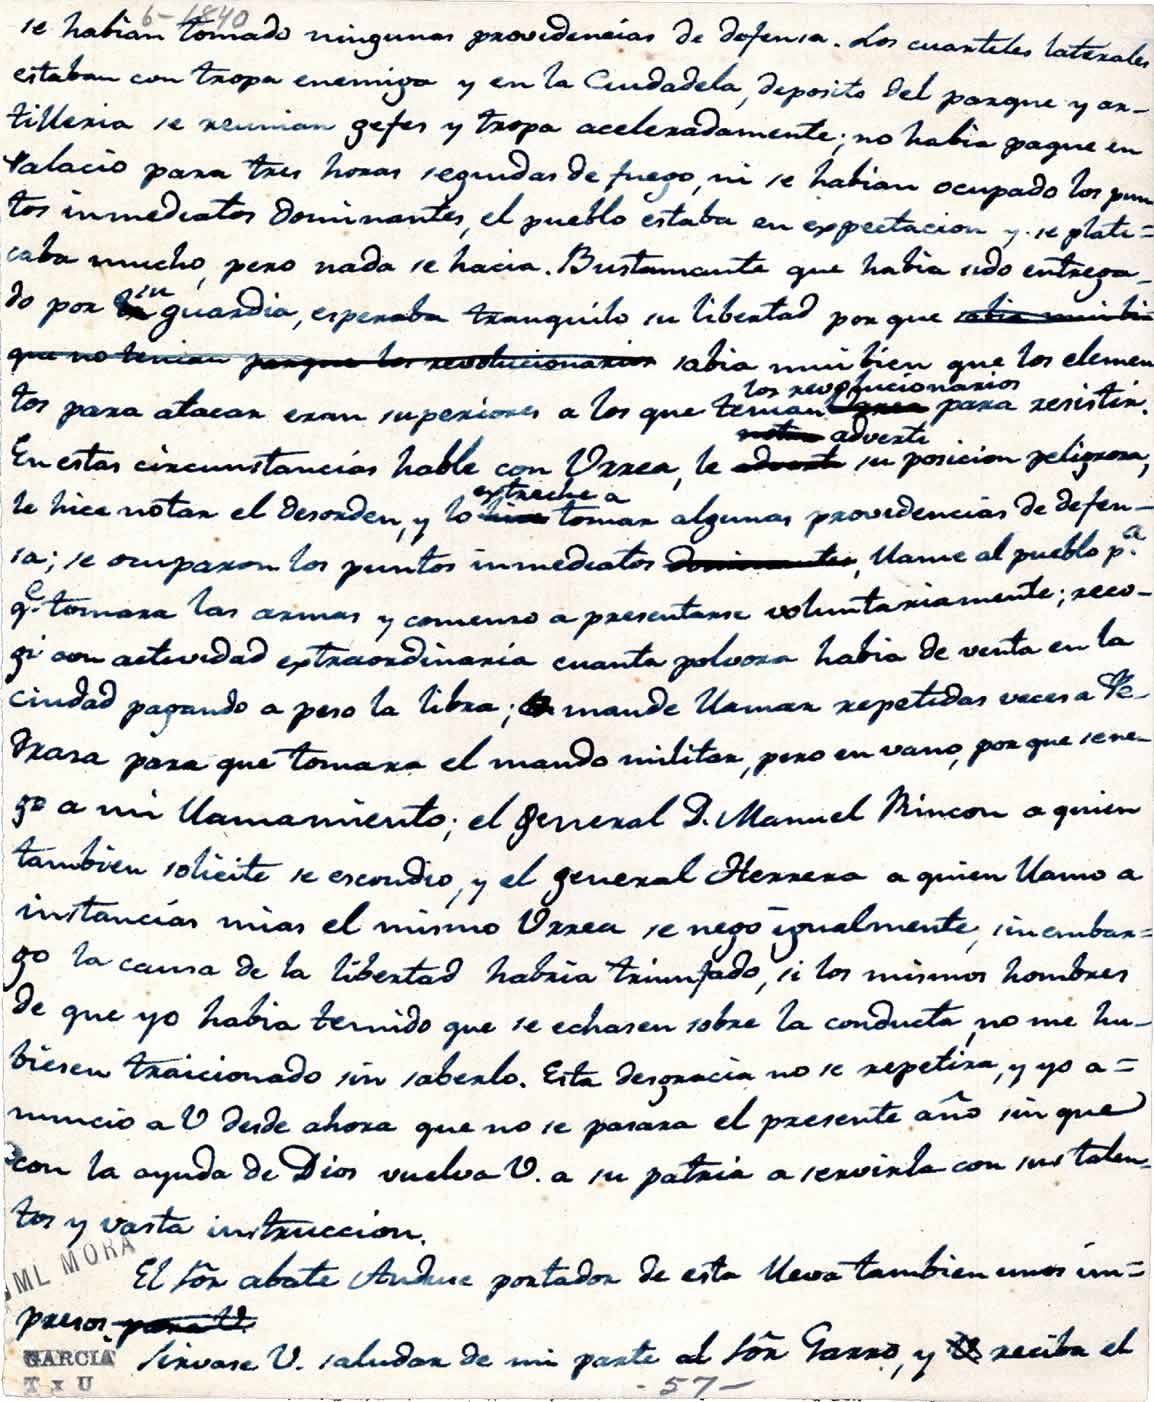 6-1840
se habian tomado ningunas providencias de defensa. Los cuarteles laterales
estaban con tropa enemiga y en la Ciudadela, deposito del parque y ar-
tilleria se reunian gefes y tropa aceleradamente; no habia paque en
Palacio para tres horas seguidas de fuego, ni se habian ocupado los pun
tos inmediatos dominantes, el pueblo estaba en expectacion y se plati=
caba mucho, pero nada se hacia. Bustamante que habia sido entrega-
su
do por guardia, esperaba tranquilo su libertad por que sabia mui bien
que no tenian parque los revolucionarios sabia mui bien que los elemen
los revolucionarios
tos para atacar eran superiores a los que tenian Urrea para resistir.
notar adverti
En estas circunstancias hable con Urrea, le adverti su posicion peligrosa,
extreche a
le hice notar el desorden, y lo hice tomar algunas providencias de defen-
sa; se ocuparon los puntos inmediatos dominantes, llame al pueblo p.a
q.e tomara las armas y comenso a presentarse voluntariamente; reco-
gi con actividad extraordinaria cuanta polvora habia de venta en la
ciudad pagando a peso la libra; mande llamar repetidas veces a Pe-
draza para que tomara el mando militar, pero en vano, por que se ne-
go a mi llamamiento; el general D. Manuel Rincon a quien
tambien solicite se escondio, y el general Herrera a quien llamo a
instancias mias el mismo Urrea se negó igualmente, sin embar=
go la causa de la libertad habria triunfado, si los mismos hombres
de que yo habia temido que se echasen sobre la conducta, no me hu-
biesen traicionado sin saberlo. Esta desgracia no se repetira, y yo a=
nuncio a V desde ahora que no se pasara el presente año sin que
con la ayuda de Dios vuelva V. a su patria a servirla con sus talen-
tos y vasta instruccion.
El Sõr abate Andue portador de esta lleva tambien unos im=
presos para V.
Sirvase V. saludar de mi parte al Sõr Garro, y reciba el
ML MORA
GARCIA
T x U
-57-